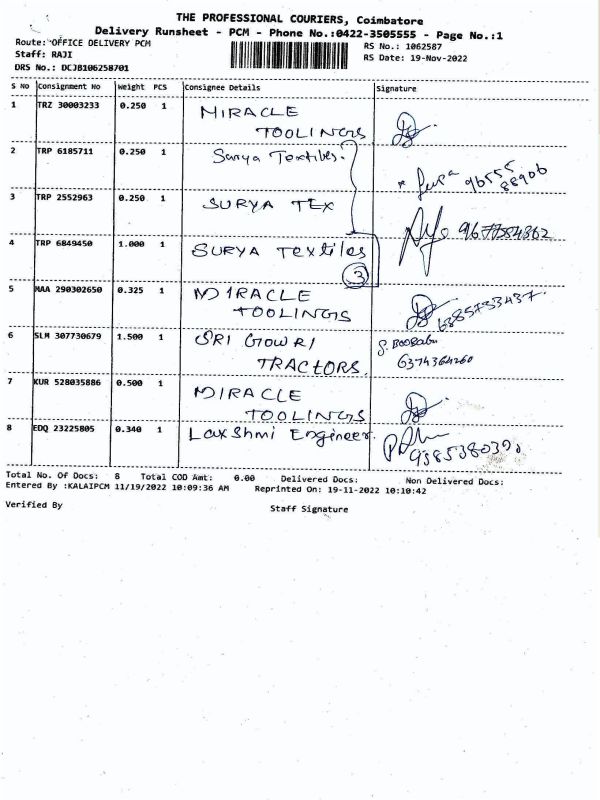 THE PROFESSIONAL COURIERS, Coimbatore
Delivery Runsheet - PCM - Phone No.:0422-3505555 - Page No.:1
Route: OFFICE DELIVERY PCM
RS No.: 1062587
Staff: RAJI
RS Date: 19-Nov-2022
DRS No.: DCJB106258701
S No Consignment No Weight PCS Consignee Details Signature
1 TRZ 30003233 0.250 1 MIRACLE
TOOLINGS
2 TRP 6185711 0.250 1 Surya Textiles.
96555
88906
3 TRP 2552963 0.250 1 SURYA TEX
4 TRP 6849450 1.000 1 SURYA Textiles
3
5 MAA 290302650 0.325 1 MIRACLE
TOOLINGS 6385733437.
6 SLM 307730679 1.500 1 SRI GOWRI
TRACTORS. 6374364260
7 KUR 528035886 0.500 1 MIRACLE
TOOLINGS
8 EDQ 23225805 0.340 1 Laxshmi Engineer.
Total No. Of Docs: 8 Total COD Amt: 0.00 Delivered Docs: Non Delivered Docs:
Entered By :KALAIPCM 11/19/2022 10:09:36 AM Reprinted On: 19-11-2022 10:10:42
Verified By
Staff Signature